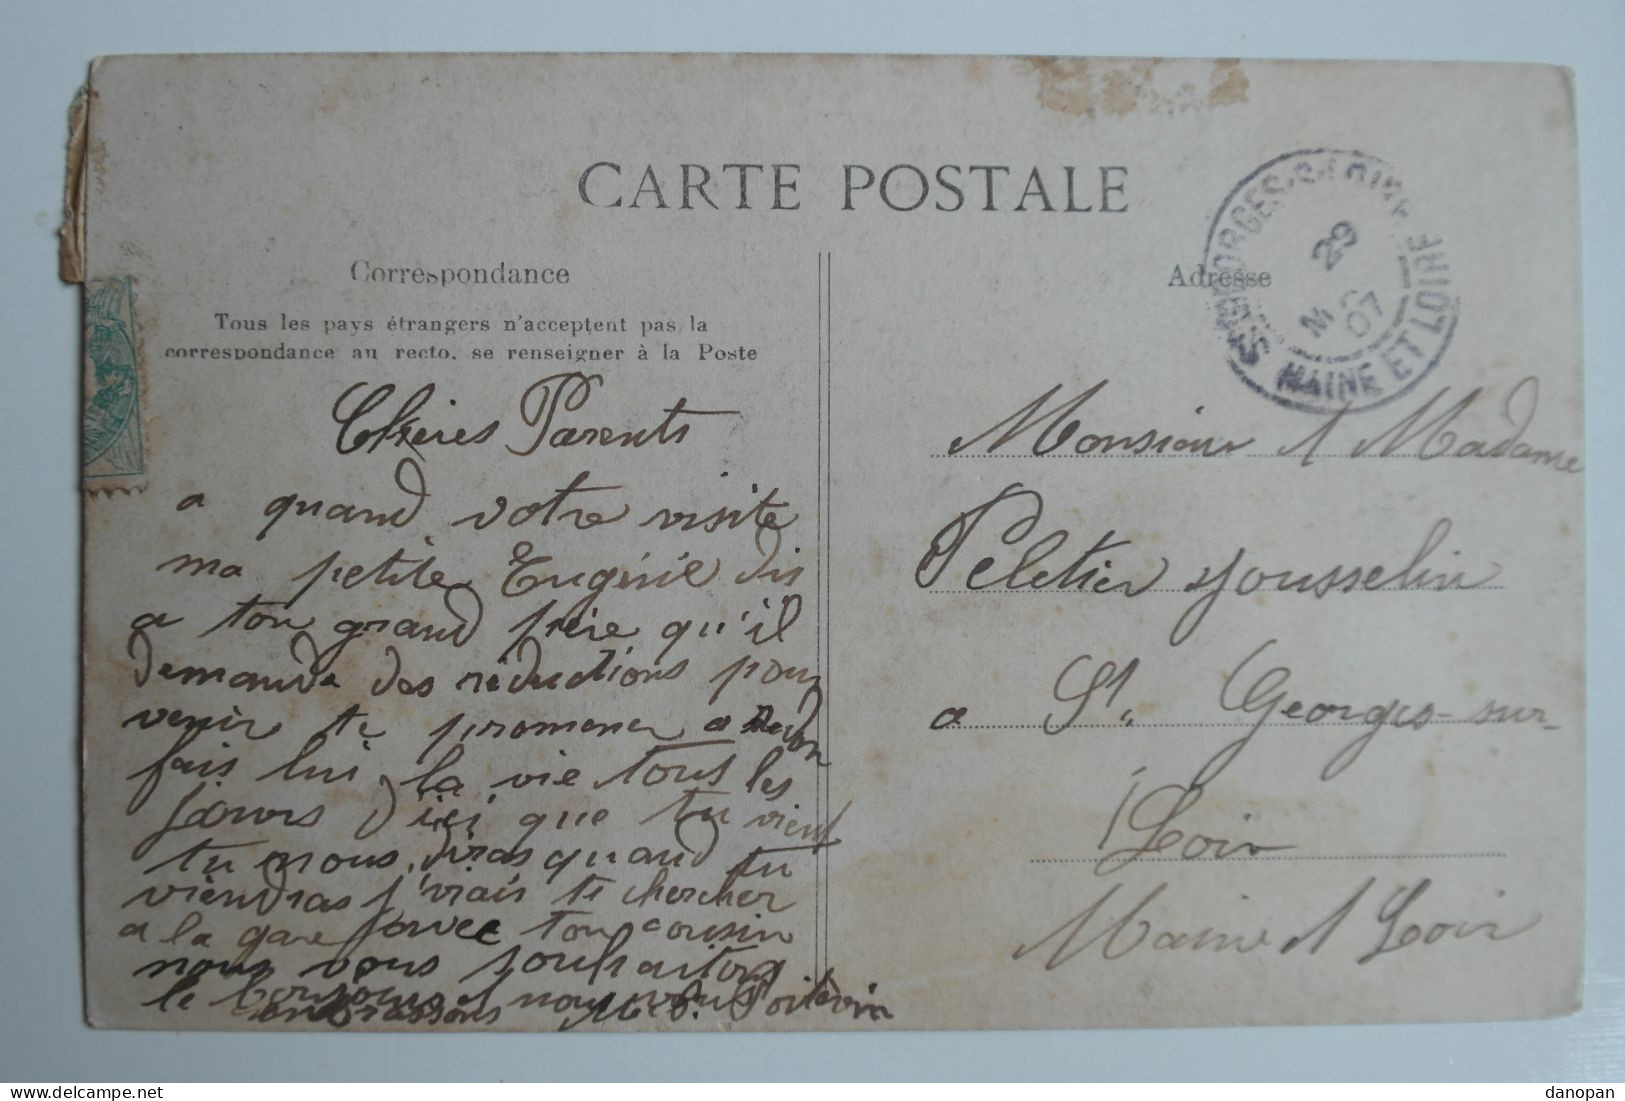 CARTE POSTALE
Correspondance
Tous les pays étrangers n'acceptent pas la
correspondance au recto. se renseigner à la Poste
Chéries Parents
a quand votre visite
ma petite Eugénie dis
a ton grand frère qu'il
demande des réductions pour
venir te promener a
fais lui la vie tous les
jours d'ici que tu vient
tu nous diras quand tu
viendras j'irais te chercher
a la gare avec ton cousin
nous vous souhaitons
le bonjour et nous vous
embrassons Poitevin
Adresse
Monsieur et Madame
Peletier Jousselin
a St. Georges-sur-
Loir
Maine et Loir
ST GEORGES-S-LOIRE
29
07
MAINE ET LOIRE
www.delcampe.net
danopan